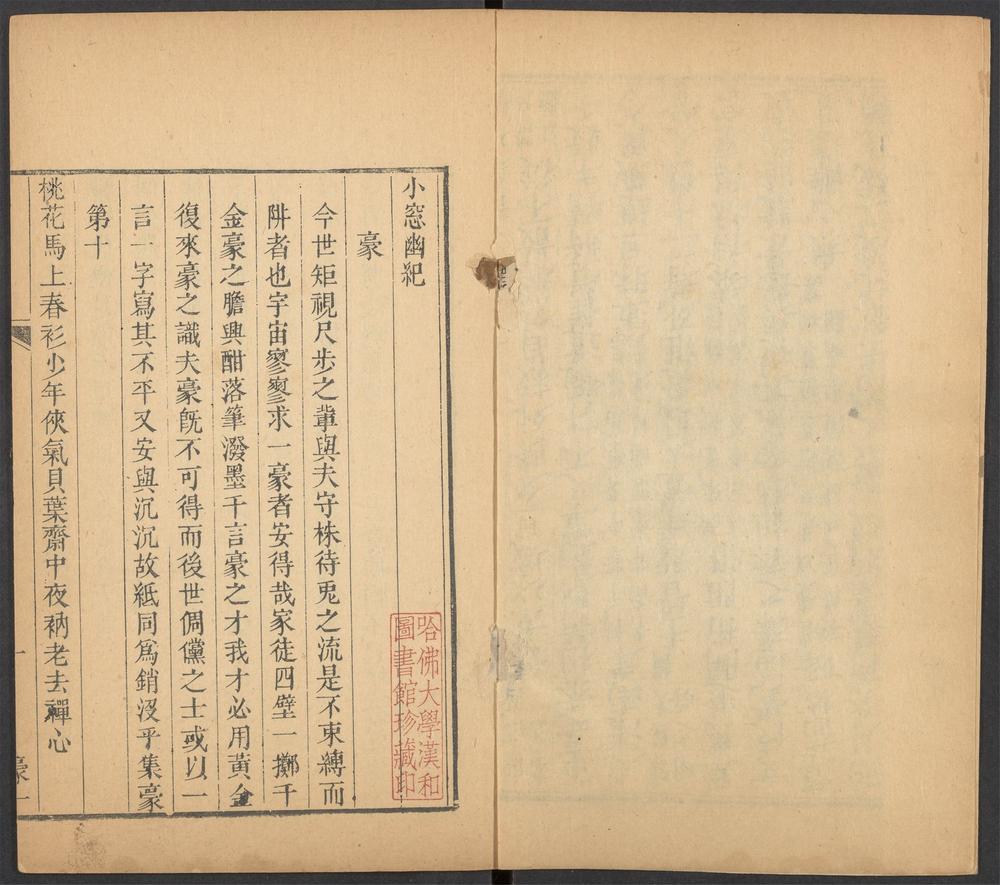 小窓幽紀
豪
今世矩視尺步之輩與夫守株待兎之流是不束縛而
阱者也宇宙寥寥求一豪者安得哉家徒四壁一擲千
金豪之膽興酣落筆潑墨千言豪之才我才必用黃金
復來豪之識夫豪旣不可得而後世倜儻之士或以一
言一字寫其不平又安與沉沉故紙同爲銷沒乎集豪
第十
桃花馬上春衫少年俠氣貝葉齋中夜衲老去禪心
豪一
哈佛大學漢和
圖書館珍藏印